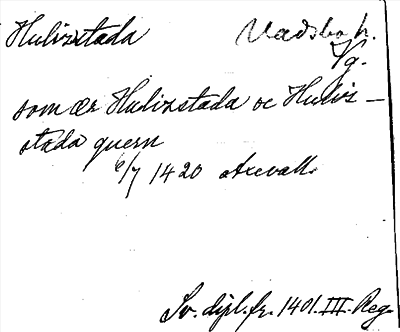 Hulizstada Vadsbo h.
Vg.
som ær Hulizstada oc Huliz-
stada quern
6/7 1420 Axevall.
Sv. dipl. fr. 1401. III. Reg.